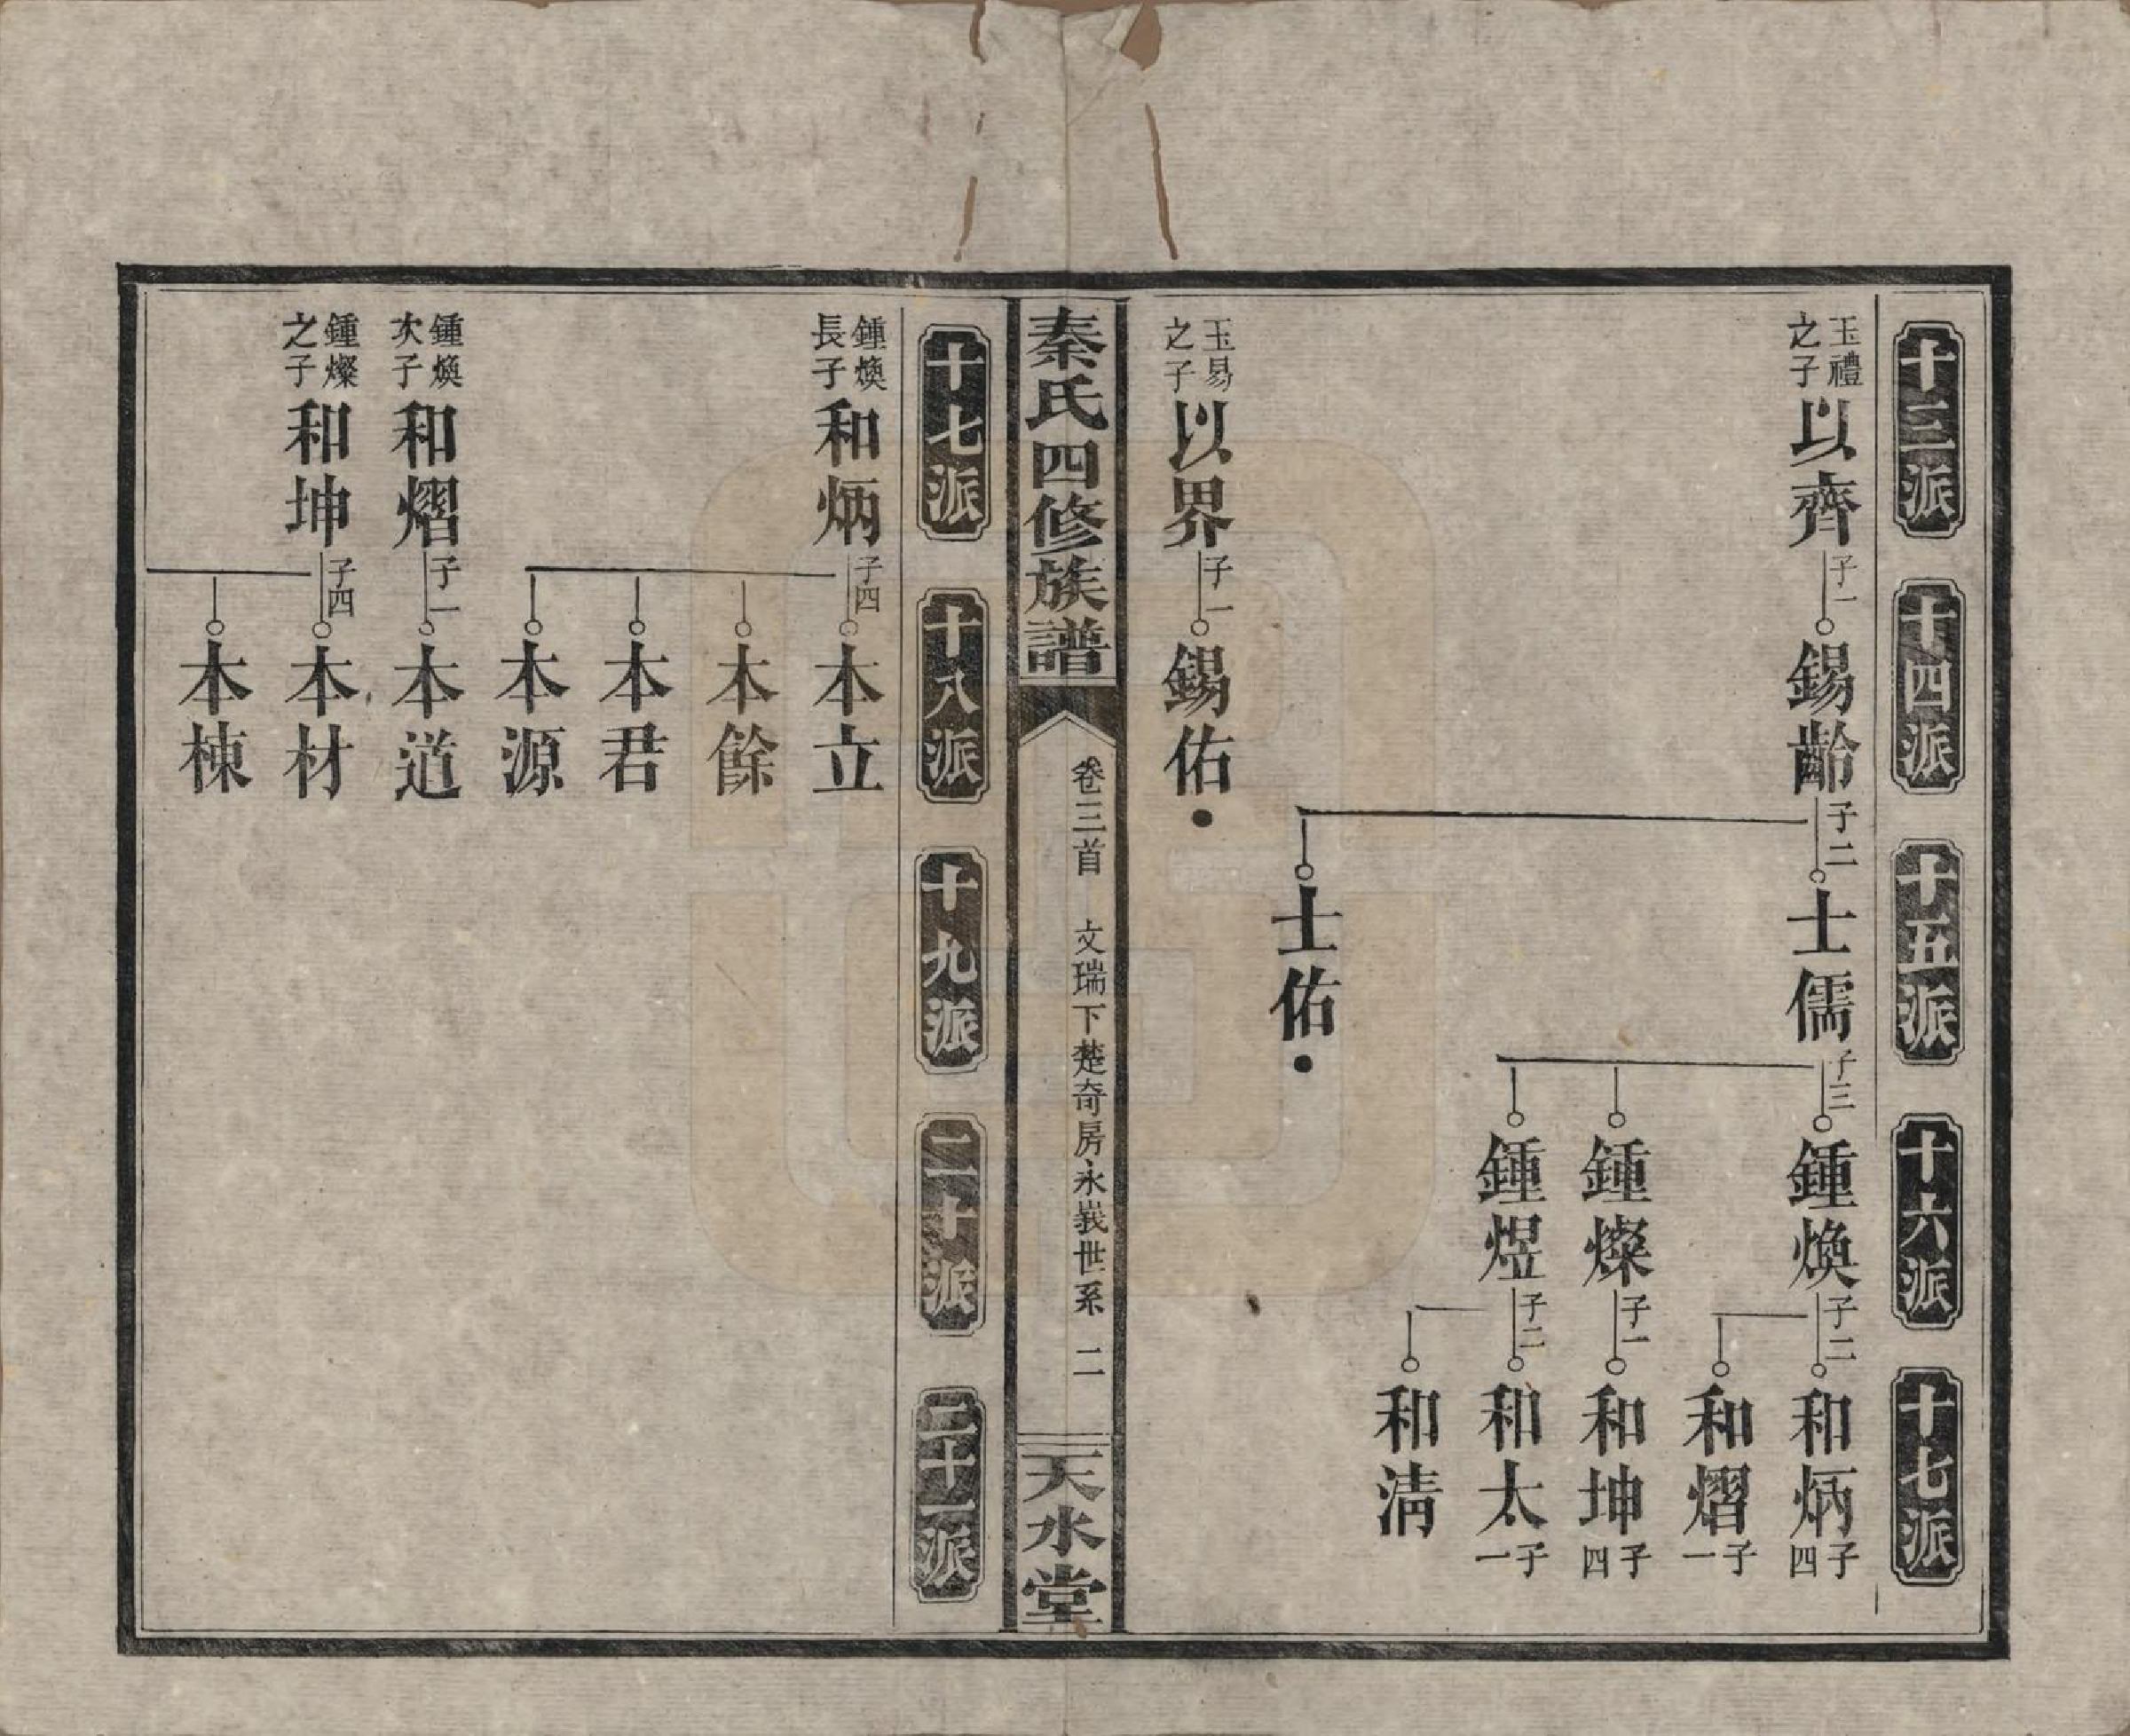 十三派
十四派
十五派
十六派
十七派
玉禮之子
以齊 子一
錫齡 子二
士儒 子三
鍾煥 子二
和炳 子四
和熠 子一
鍾燦 子一
和坤 子四
鍾煜 子二
和太 子一
和淸
士佑
玉易之子
以界 子一
錫佑
秦氏四修族譜
卷三首 文瑞下楚奇房永峩世系 二
天水堂
十七派
十八派
十九派
二十派
二十一派
鍾煥長子
和炳 子四
本立
本餘
本君
本源
鍾煥次子
和熠 子一
本道
鍾燦之子
和坤 子四
本材
本棟